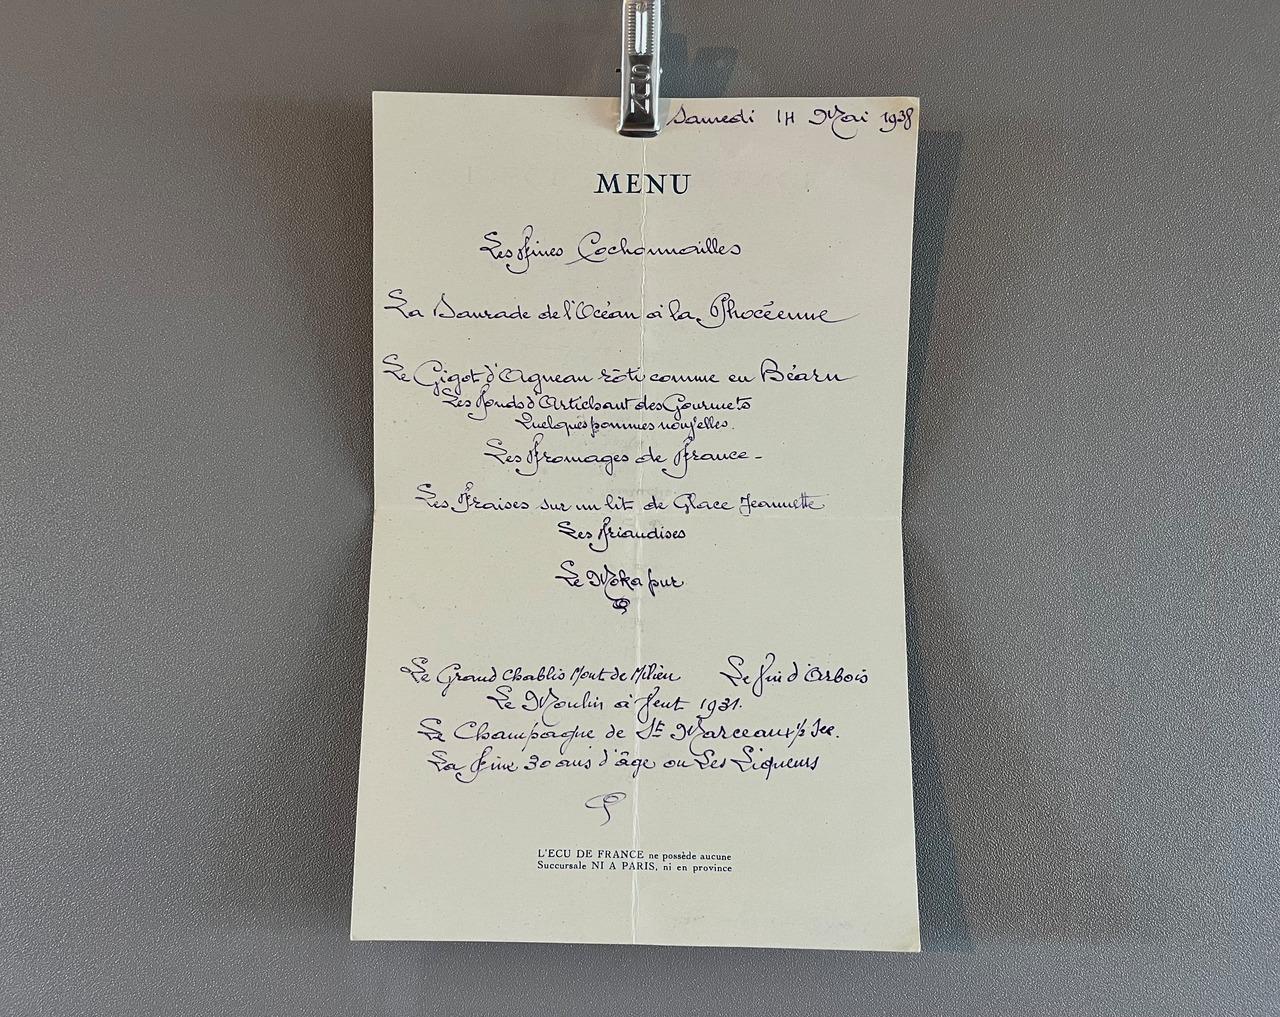 SUN
Samedi 14 Mai 1938
MENU
Les fines Cochonnailles
La Daurade de l'Océan à la Phocéenne
Le Gigot d'Agneau rôti comme en Béarn
Les fonds d'Artichaut des Gourmets
Quelques pommes nouvelles.
Les Fromages de France -
Les Fraises sur un lit de Glace Jeannette
Les friandises
Le Moka pur
Le Grand Chablis Mont de Milieu Le fin d'Arbois
Le Moulin à Vent 1931.
Le Champagne de St Marceaux ½ Sec.
La fine 30 ans d'âge ou Les Liqueurs
L'ECU DE FRANCE ne possède aucune
Succursale NI A PARIS, ni en province